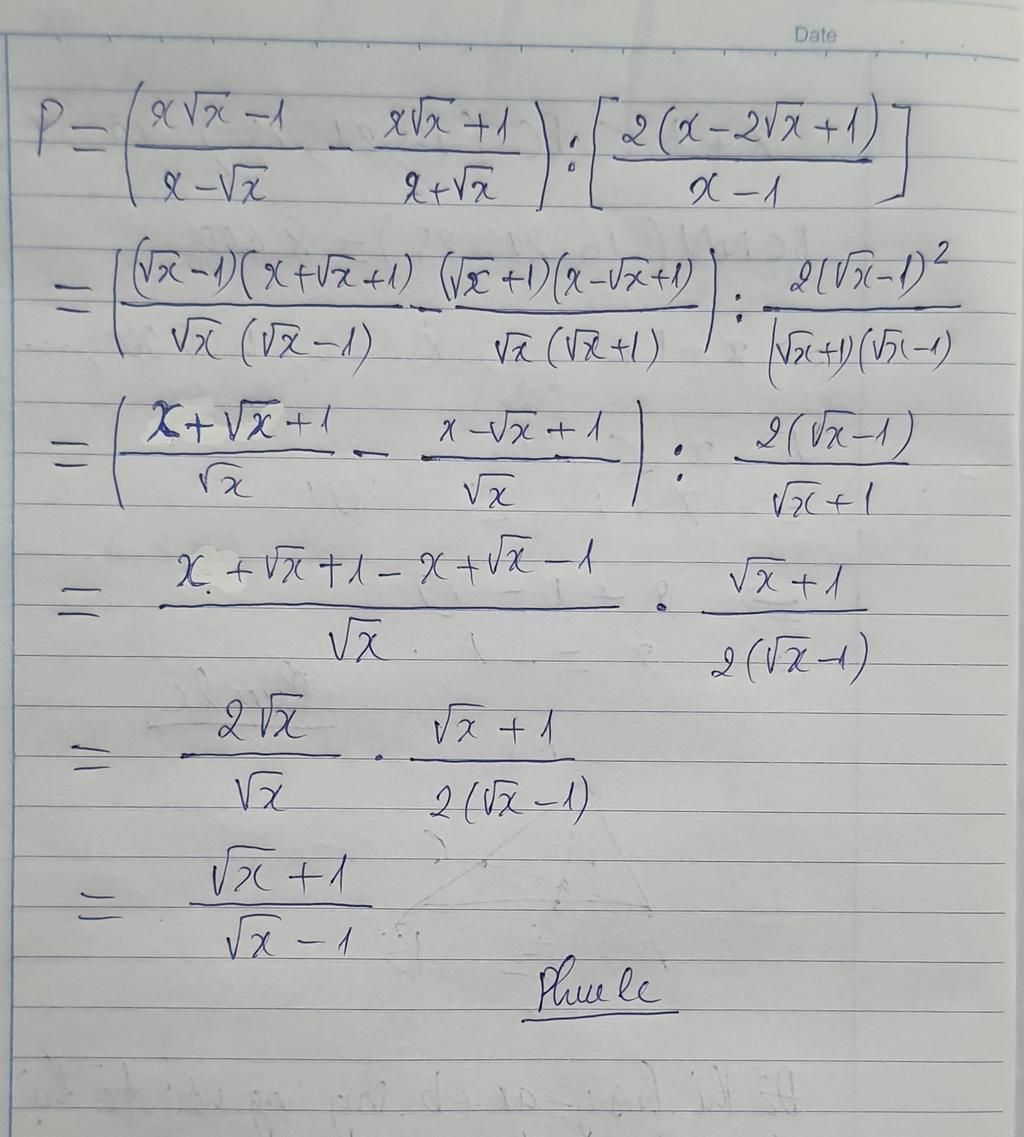 Date
P = ( (x√x - 1)/(x - √x) - (x√x + 1)/(x + √x) ) : [ 2(x - 2√x + 1)/(x - 1) ]
= ( (√x - 1)(x + √x + 1)/(√x(√x - 1)) - (√x + 1)(x - √x + 1)/(√x(√x + 1)) ) : 2(√x - 1)²/((√x + 1)(√x - 1))
= ( (x + √x + 1)/√x - (x - √x + 1)/√x ) : 2(√x - 1)/(√x + 1)
= (x + √x + 1 - x + √x - 1)/√x . (√x + 1)/(2(√x - 1))
= 2√x/√x . (√x + 1)/(2(√x - 1))
= (√x + 1)/(√x - 1)